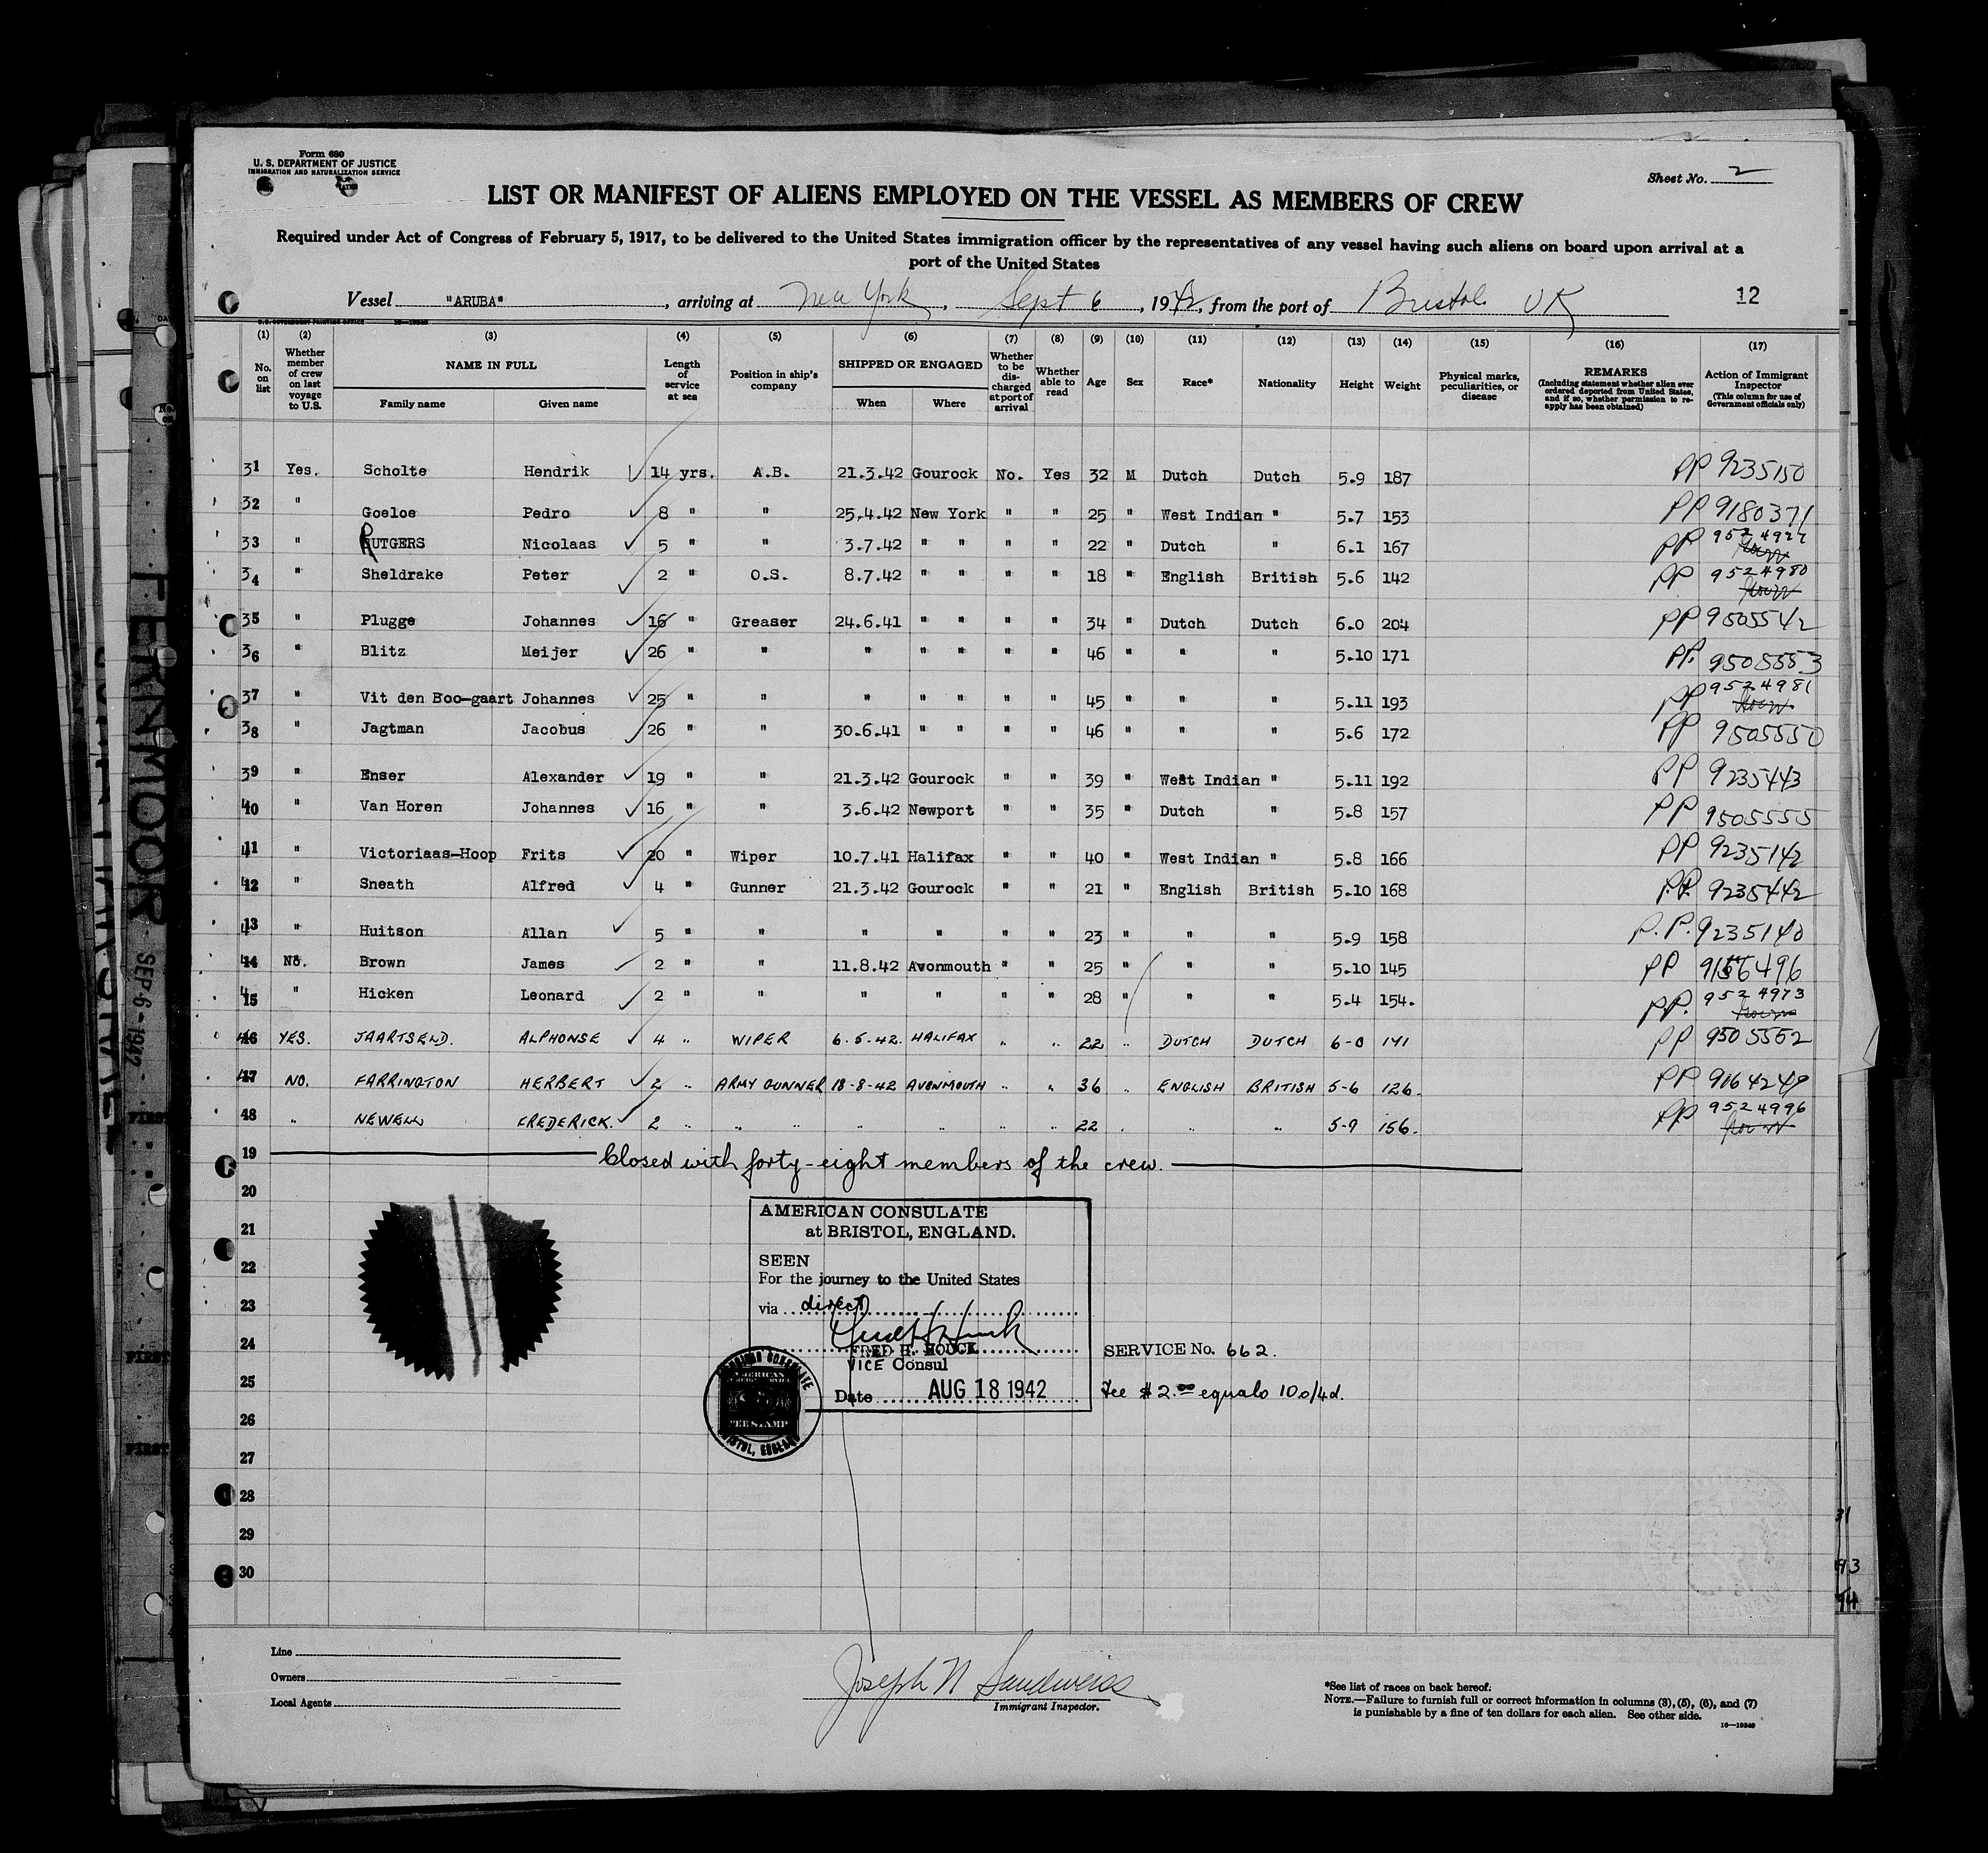 Form 680
U. S. DEPARTMENT OF JUSTICE
IMMIGRATION AND NATURALIZATION SERVICE
Sheet No. 2
LIST OR MANIFEST OF ALIENS EMPLOYED ON THE VESSEL AS MEMBERS OF CREW
Required under Act of Congress of February 5, 1917, to be delivered to the United States immigration officer by the representatives of any vessel having such aliens on board upon arrival at a
port of the United States
Vessel "ARUBA", arriving at New York, Sept 6, 1942, from the port of Bristol UK 12
(1) (2) (3) (4) (5) (6) (7) (8) (9) (10) (11) (12) (13) (14) (15) (16) (17)
No. on list Whether member of crew on last voyage to U.S. NAME IN FULL Family name Given name Length of service at sea Position in ship's company SHIPPED OR ENGAGED When Where Whether to be discharged at port of arrival Whether able to read Age Sex Race* Nationality Height Weight Physical marks, peculiarities, or disease REMARKS (Including statement whether alien ever ordered deported from United States, and if so, whether permission to reapply has been obtained) Action of Immigrant Inspector (This column for use of Government officials only)
31 Yes. Scholte Hendrik 14 yrs. A.B. 21.3.42 Gourock No. Yes 32 M Dutch Dutch 5.9 187 PP 9235150
32 " Goeloe Pedro 8 " " 25.4.42 New York " " 25 " West Indian " 5.7 153 PP 9180371
33 " RUTGERS Nicolaas 5 " " 3.7.42 " " " " 22 " Dutch " 6.1 167 PP
34 " Sheldrake Peter 2 " O.S. 8.7.42 " " " " 18 " English British 5.6 142 PP 9524980
35 " Plugge Johannes 16 " Greaser 24.6.41 " " " " 34 " Dutch Dutch 6.0 204 PP 9505542
36 " Blitz Meijer 26 " " " " " " " 46 " " " 5.10 171 PP. 9505553
37 " Vit den Boo-gaart Johannes 25 " " " " " " " 45 " " " 5.11 193 PP 9524981
38 " Jagtman Jacobus 26 " " 30.6.41 " " " " 46 " " " 5.6 172 PP 9505550
39 " Enser Alexander 19 " " 21.3.42 Gourock " " 39 " West Indian " 5.11 192 PP 9235443
40 " Van Horen Johannes 16 " " 3.6.42 Newport " " 35 " Dutch " 5.8 157 PP 9505555
41 " Victoriaas-Hoop Frits 20 " Wiper 10.7.41 Halifax " " 40 " West Indian " 5.8 166 PP 9235142
42 " Sneath Alfred 4 " Gunner 21.3.42 Gourock " " 21 " English British 5.10 168 P.P. 9235442
43 " Huitson Allan 5 " " " " " " 23 " " " 5.9 158 P.P. 9235140
44 No. Brown James 2 " " 11.8.42 Avonmouth " " 25 " " " 5.10 145 PP 9156496
45 " Hicken Leonard 2 " " " " " " 28 " " " 5.4 154. PP. 9524973
46 YES. JAARTSELD. ALPHONSE 4 " WIPER 6.5-42. HALIFAX " " 22 " DUTCH DUTCH 6-0 141 PP 9505552
47 NO. FARRINGTON HERBERT 2 " ARMY GUNNER 18-8-42 AVONMOUTH " " 36 " ENGLISH BRITISH 5-6 126. PP 9164249
48 " NEWELL FREDERICK. 2 " " " " " " " 22 " " " 5-9 156. PP 9524996
19 Closed with forty-eight members of the crew.
20
21
22
23
24
25
26
27
28
29
30
AMERICAN CONSULATE
at BRISTOL, ENGLAND.
SEEN
For the journey to the United States
via direct
FRED H. HOUCK
VICE Consul
Date AUG 18 1942
SERVICE No. 662.
Fee $2.00 equals 10s/4d.
AMERICAN
FEE STAMP
BRISTOL, ENGLAND
Line
Owners
Local Agents
Joseph N Sandweiss
Immigrant Inspector.
*See list of races on back hereof.
NOTE.—Failure to furnish full or correct information in columns (3), (5), (6), and (7)
is punishable by a fine of ten dollars for each alien. See other side.
16—19349
FERNMOOR
SEP-6-1942
FIRST
FIRST
FIRST